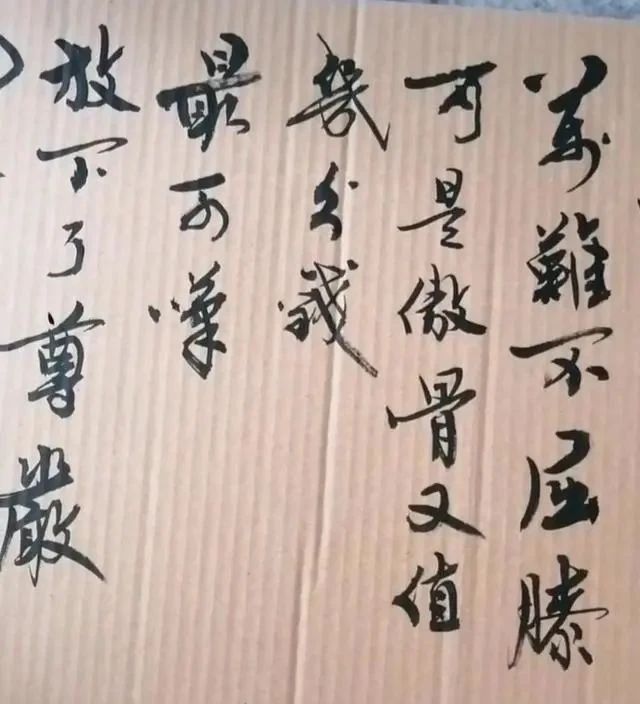 萬難不屈膝
可是傲骨又值
幾分錢
最可嘆
放下了尊嚴